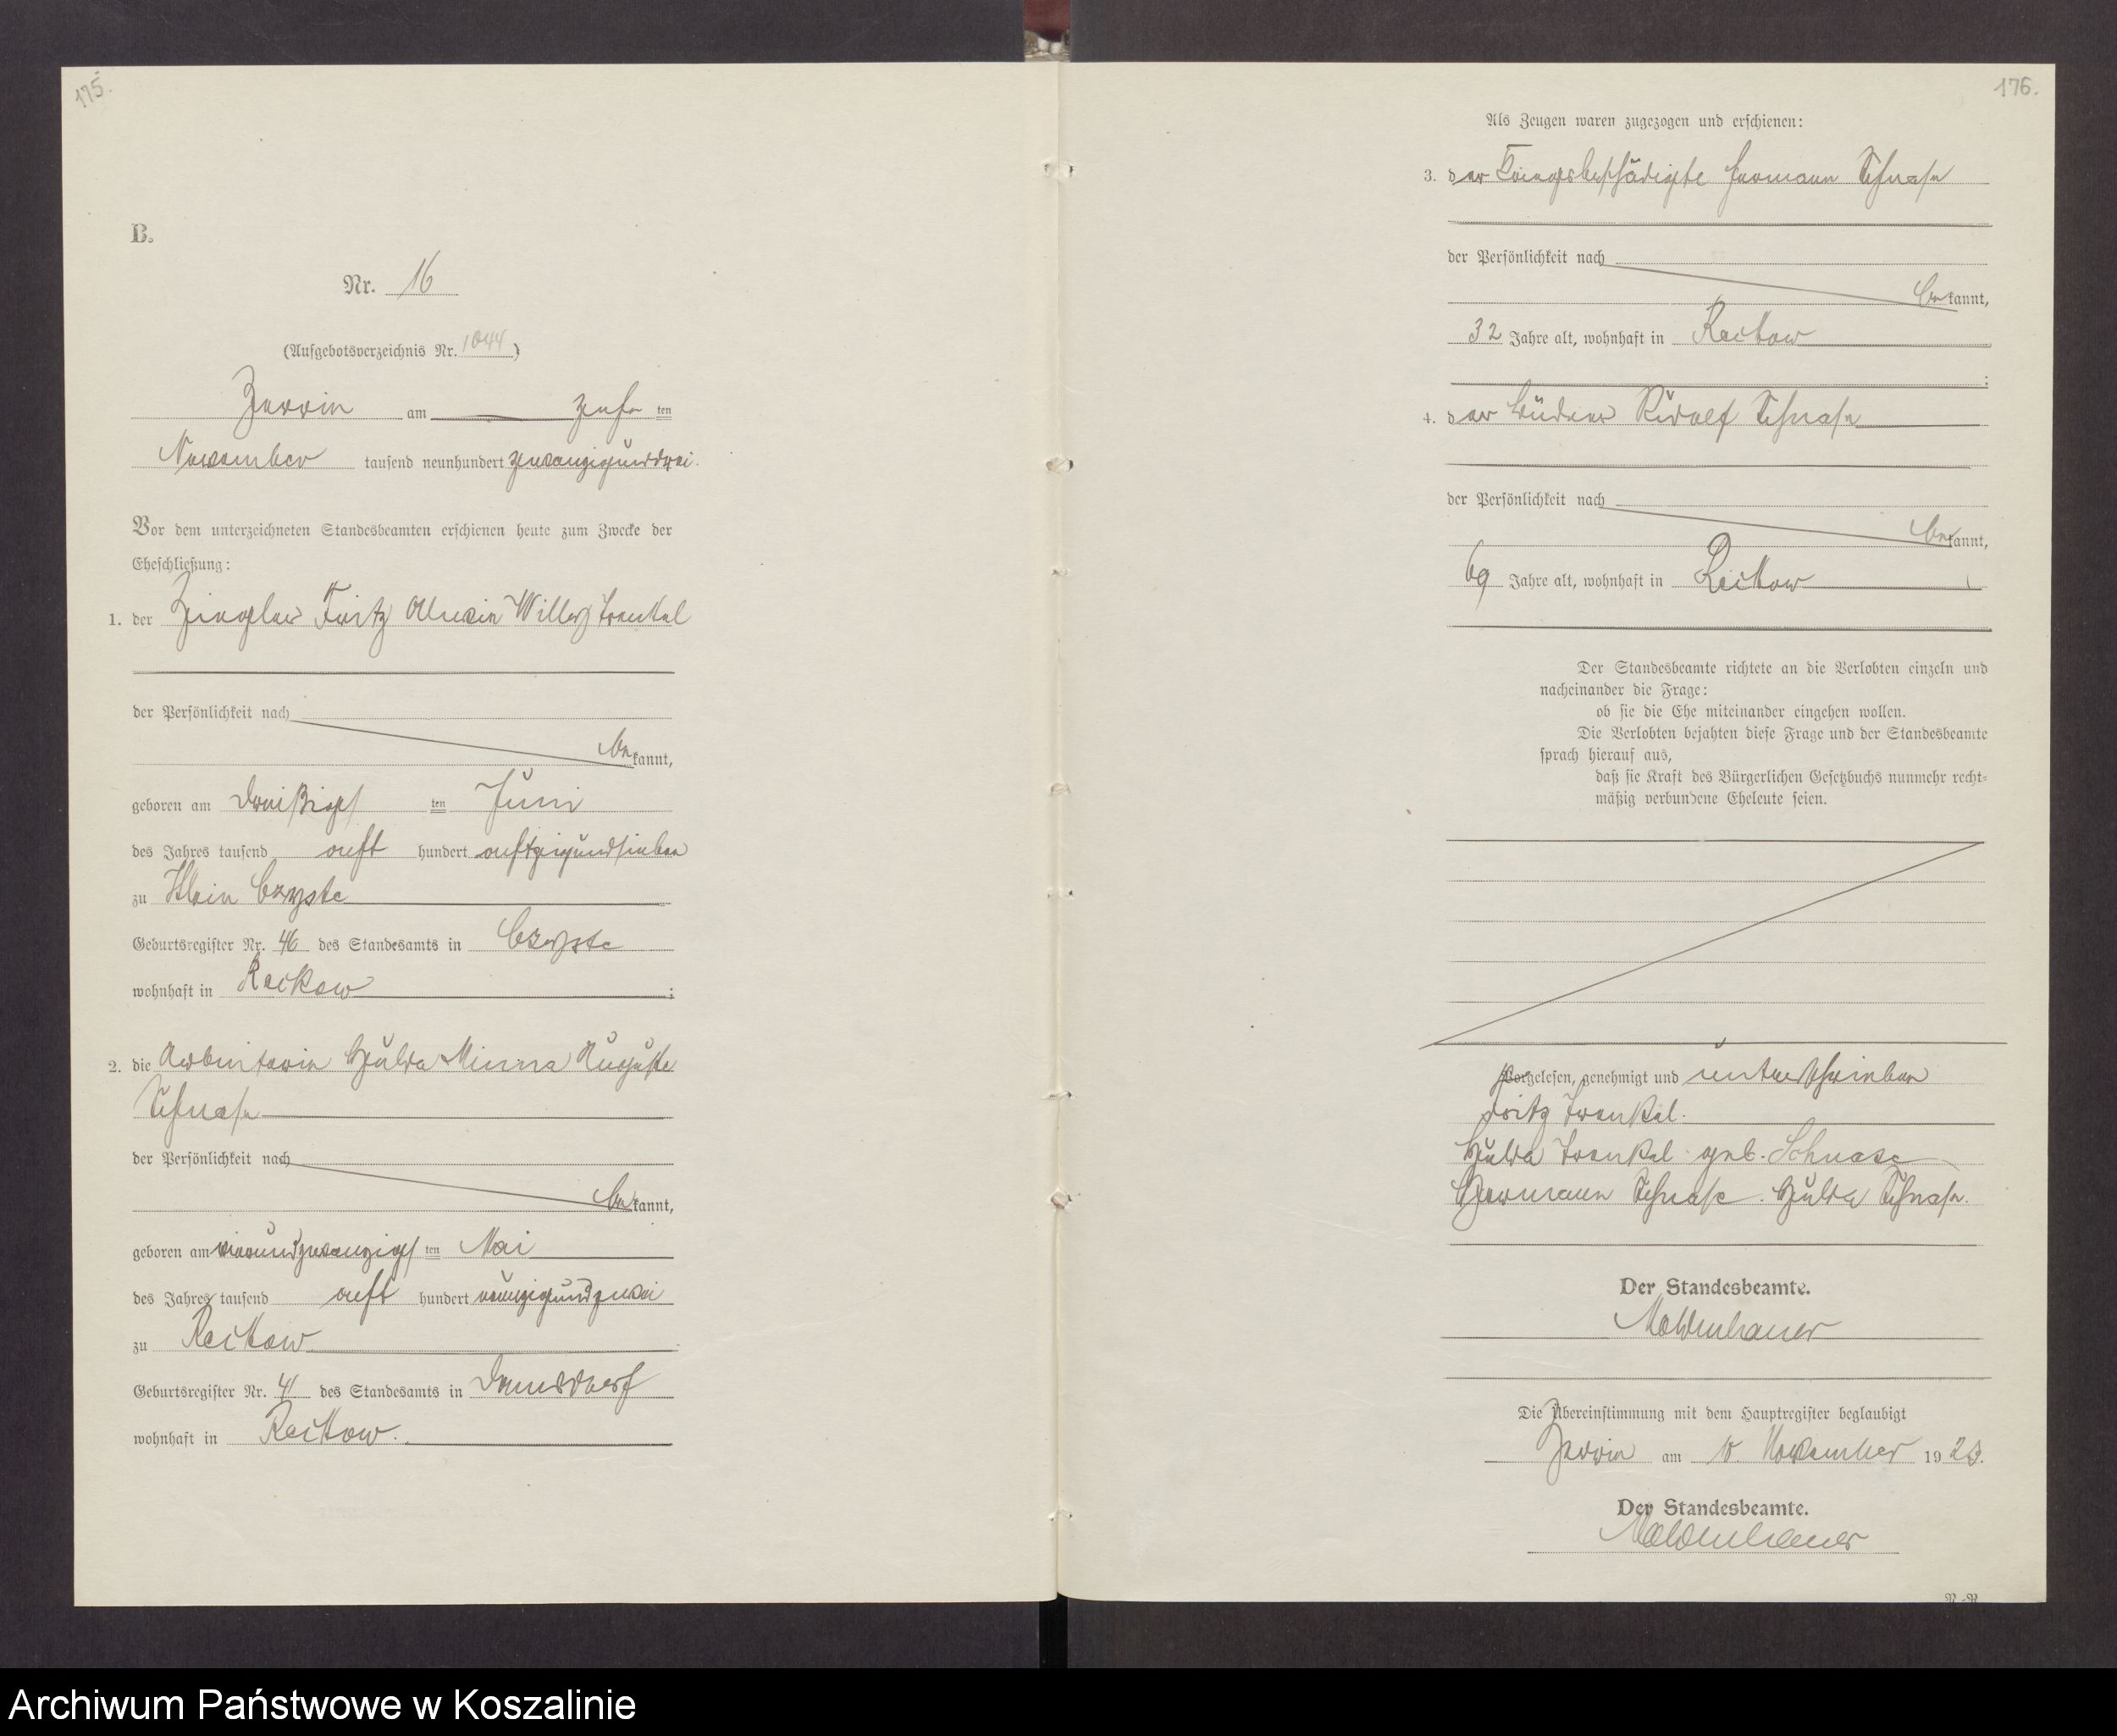 175.
B.
Nr. 16
(Aufgebotsverzeichnis Nr. 1044)
Zerrin am zehn ten
November tausend neunhundert zwanzigunddrei.
Vor dem unterzeichneten Standesbeamten erschienen heute zum Zwecke der
Eheschließung:
1. der Ziegler Fritz Alwin Willy Trenkel
der Persönlichkeit nach
bekannt,
geboren am dreißigs ten Juni
des Jahres tausend acht hundert achtzigundsieben
zu Klein Czyste
Geburtsregister Nr. 46 des Standesamts in Czyste
wohnhaft in Reckow;
2. die Arbeiterin Hulda Minna Auguste
Schnase
der Persönlichkeit nach
bekannt,
geboren am vierundzwanzigs ten Mai
des Jahres tausend acht hundert neunzigundzwei
zu Reckow
Geburtsregister Nr. 41 des Standesamts in
wohnhaft in Reckow.
176.
Als Zeugen waren zugezogen und erschienen:
3. der Kriegsbeschädigte Hermann Schnase
der Persönlichkeit nach
bekannt,
32 Jahre alt, wohnhaft in Reckow
;
4. der Büdner Rudolf Schnase
der Persönlichkeit nach
bekannt,
69 Jahre alt, wohnhaft in Reckow
Der Standesbeamte richtete an die Verlobten einzeln und
nacheinander die Frage:
ob sie die Ehe miteinander eingehen wollen.
Die Verlobten bejahten diese Frage und der Standesbeamte
sprach hierauf aus,
daß sie Kraft des Bürgerlichen Gesetzbuchs nunmehr recht-
mäßig verbundene Eheleute seien.
Vorgelesen, genehmigt und unterschrieben
Fritz Trenkel.
Hulda Trenkel geb. Schnase
Hermann Schnase. Hulda Schnase.
Der Standesbeamte.
Moldenhauer
Die Übereinstimmung mit dem Hauptregister beglaubigt
Zerrin am 10. November 1923.
Der Standesbeamte.
Moldenhauer
Archiwum Państwowe w Koszalinie